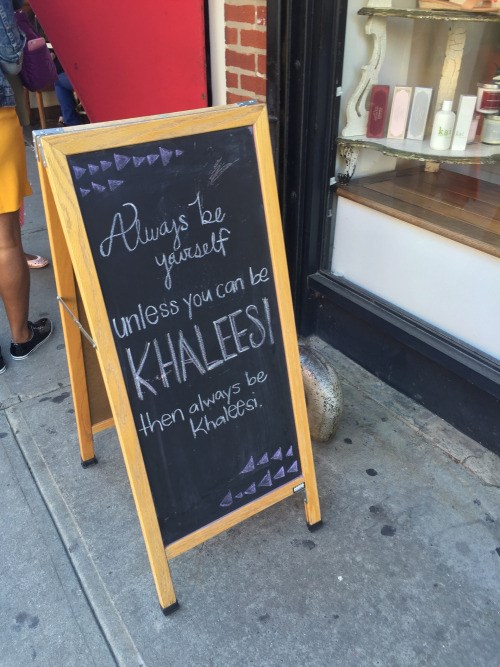 Always be
yourself
unless you can be
KHALEESI
then always be
Khaleesi.